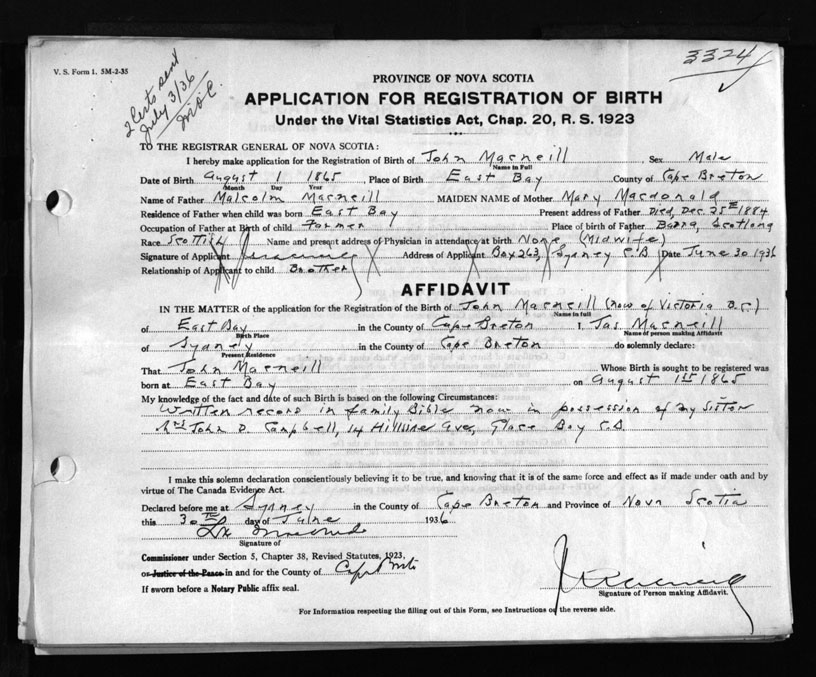 V. S. Form 1. 5M-2-35
3324
2 Certs sent
July 3/36
PROVINCE OF NOVA SCOTIA
APPLICATION FOR REGISTRATION OF BIRTH
Under the Vital Statistics Act, Chap. 20, R. S. 1923
TO THE REGISTRAR GENERAL OF NOVA SCOTIA:
I hereby make application for the Registration of Birth of John Macneill Sex Male
Name in Full
Date of Birth August 1 1865 Place of Birth East Bay County of Cape Breton
Month Day Year
Name of Father Malcolm Macneill MAIDEN NAME of Mother Mary Macdonald
Residence of Father when child was born East Bay Present address of Father Died, Dec. 25th 1884
Occupation of Father at Birth of child Farmer Place of birth of Father Barra, Scotland
Race Scottish Name and present address of Physician in attendance at birth None (Midwife)
Signature of Applicant Address of Applicant Box 263, Sydney C.B. Date June 30 1936
Relationship of Applicant to child Brother
AFFIDAVIT
IN THE MATTER of the application for the Registration of the Birth of John Macneill (now of Victoria B.C.)
Name in full
of East Bay in the County of Cape Breton I, Jas. Macneill
Birth Place Name of person making Affidavit
of Sydney in the County of Cape Breton do solemnly declare:
Present Residence
That John Macneill Whose Birth is sought to be registered was
born at East Bay on August 1st 1865
My knowledge of the fact and date of such Birth is based on the following Circumstances:
Written record in family Bible now in possession of my sister
Mrs John D. Campbell, 14 Ave, Glace Bay C.B.
I make this solemn declaration conscientiously believing it to be true, and knowing that it is of the same force and effect as if made under oath and by
virtue of The Canada Evidence Act.
Declared before me at Sydney in the County of Cape Breton and Province of Nova Scotia
this 30th day of June 1936
Signature of
Commissioner under Section 5, Chapter 38, Revised Statutes, 1923,
or Justice of the Peace in and for the County of Cape Breton
If sworn before a Notary Public affix seal.
Signature of Person making Affidavit.
For Information respecting the filling out of this Form, see Instructions on the reverse side.